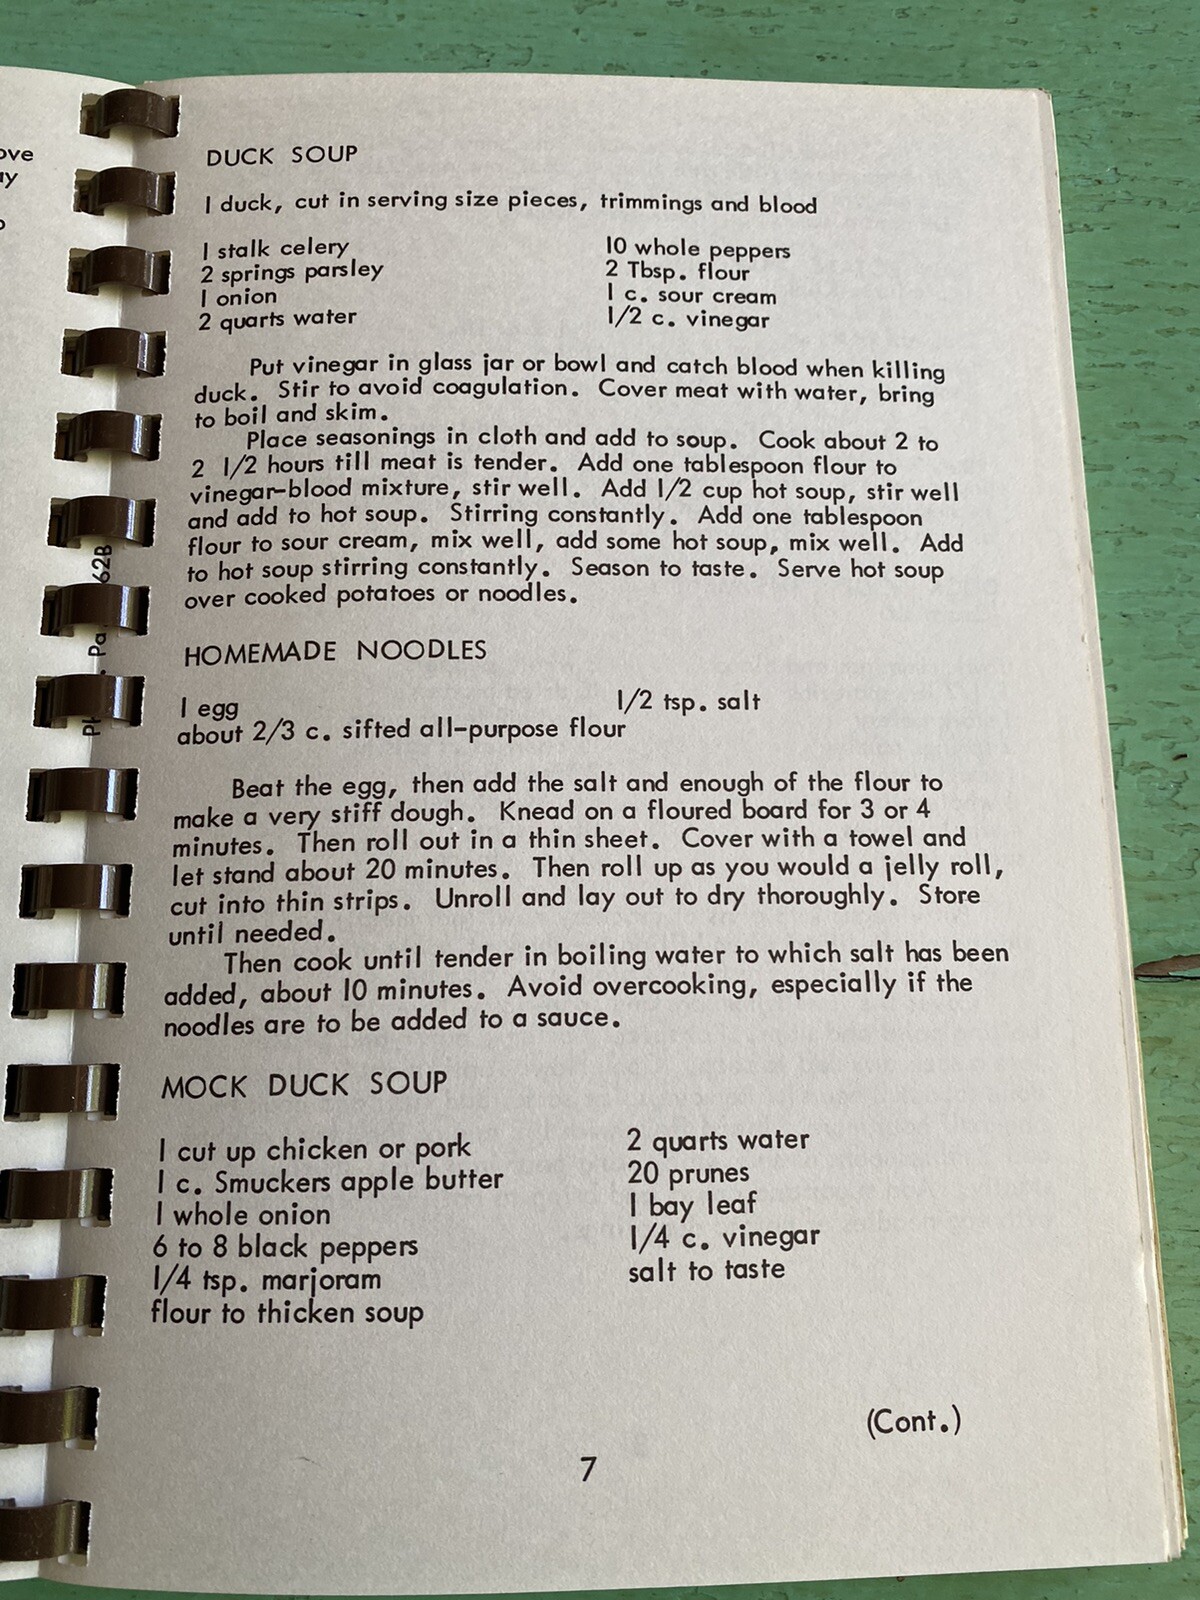 ove
DUCK SOUP
1 duck, cut in serving size pieces, trimmings and blood
1 stalk celery 10 whole peppers
2 springs parsley 2 Tbsp. flour
1 onion 1 c. sour cream
2 quarts water 1/2 c. vinegar
Put vinegar in glass jar or bowl and catch blood when killing
duck. Stir to avoid coagulation. Cover meat with water, bring
to boil and skim.
Place seasonings in cloth and add to soup. Cook about 2 to
2 1/2 hours till meat is tender. Add one tablespoon flour to
vinegar-blood mixture, stir well. Add 1/2 cup hot soup, stir well
and add to hot soup. Stirring constantly. Add one tablespoon
flour to sour cream, mix well, add some hot soup, mix well. Add
to hot soup stirring constantly. Season to taste. Serve hot soup
over cooked potatoes or noodles.
HOMEMADE NOODLES
1 egg 1/2 tsp. salt
about 2/3 c. sifted all-purpose flour
Beat the egg, then add the salt and enough of the flour to
make a very stiff dough. Knead on a floured board for 3 or 4
minutes. Then roll out in a thin sheet. Cover with a towel and
let stand about 20 minutes. Then roll up as you would a jelly roll,
cut into thin strips. Unroll and lay out to dry thoroughly. Store
until needed.
Then cook until tender in boiling water to which salt has been
added, about 10 minutes. Avoid overcooking, especially if the
noodles are to be added to a sauce.
MOCK DUCK SOUP
1 cut up chicken or pork 2 quarts water
1 c. Smuckers apple butter 20 prunes
1 whole onion 1 bay leaf
6 to 8 black peppers 1/4 c. vinegar
1/4 tsp. marjoram salt to taste
flour to thicken soup
(Cont.)
7
62B